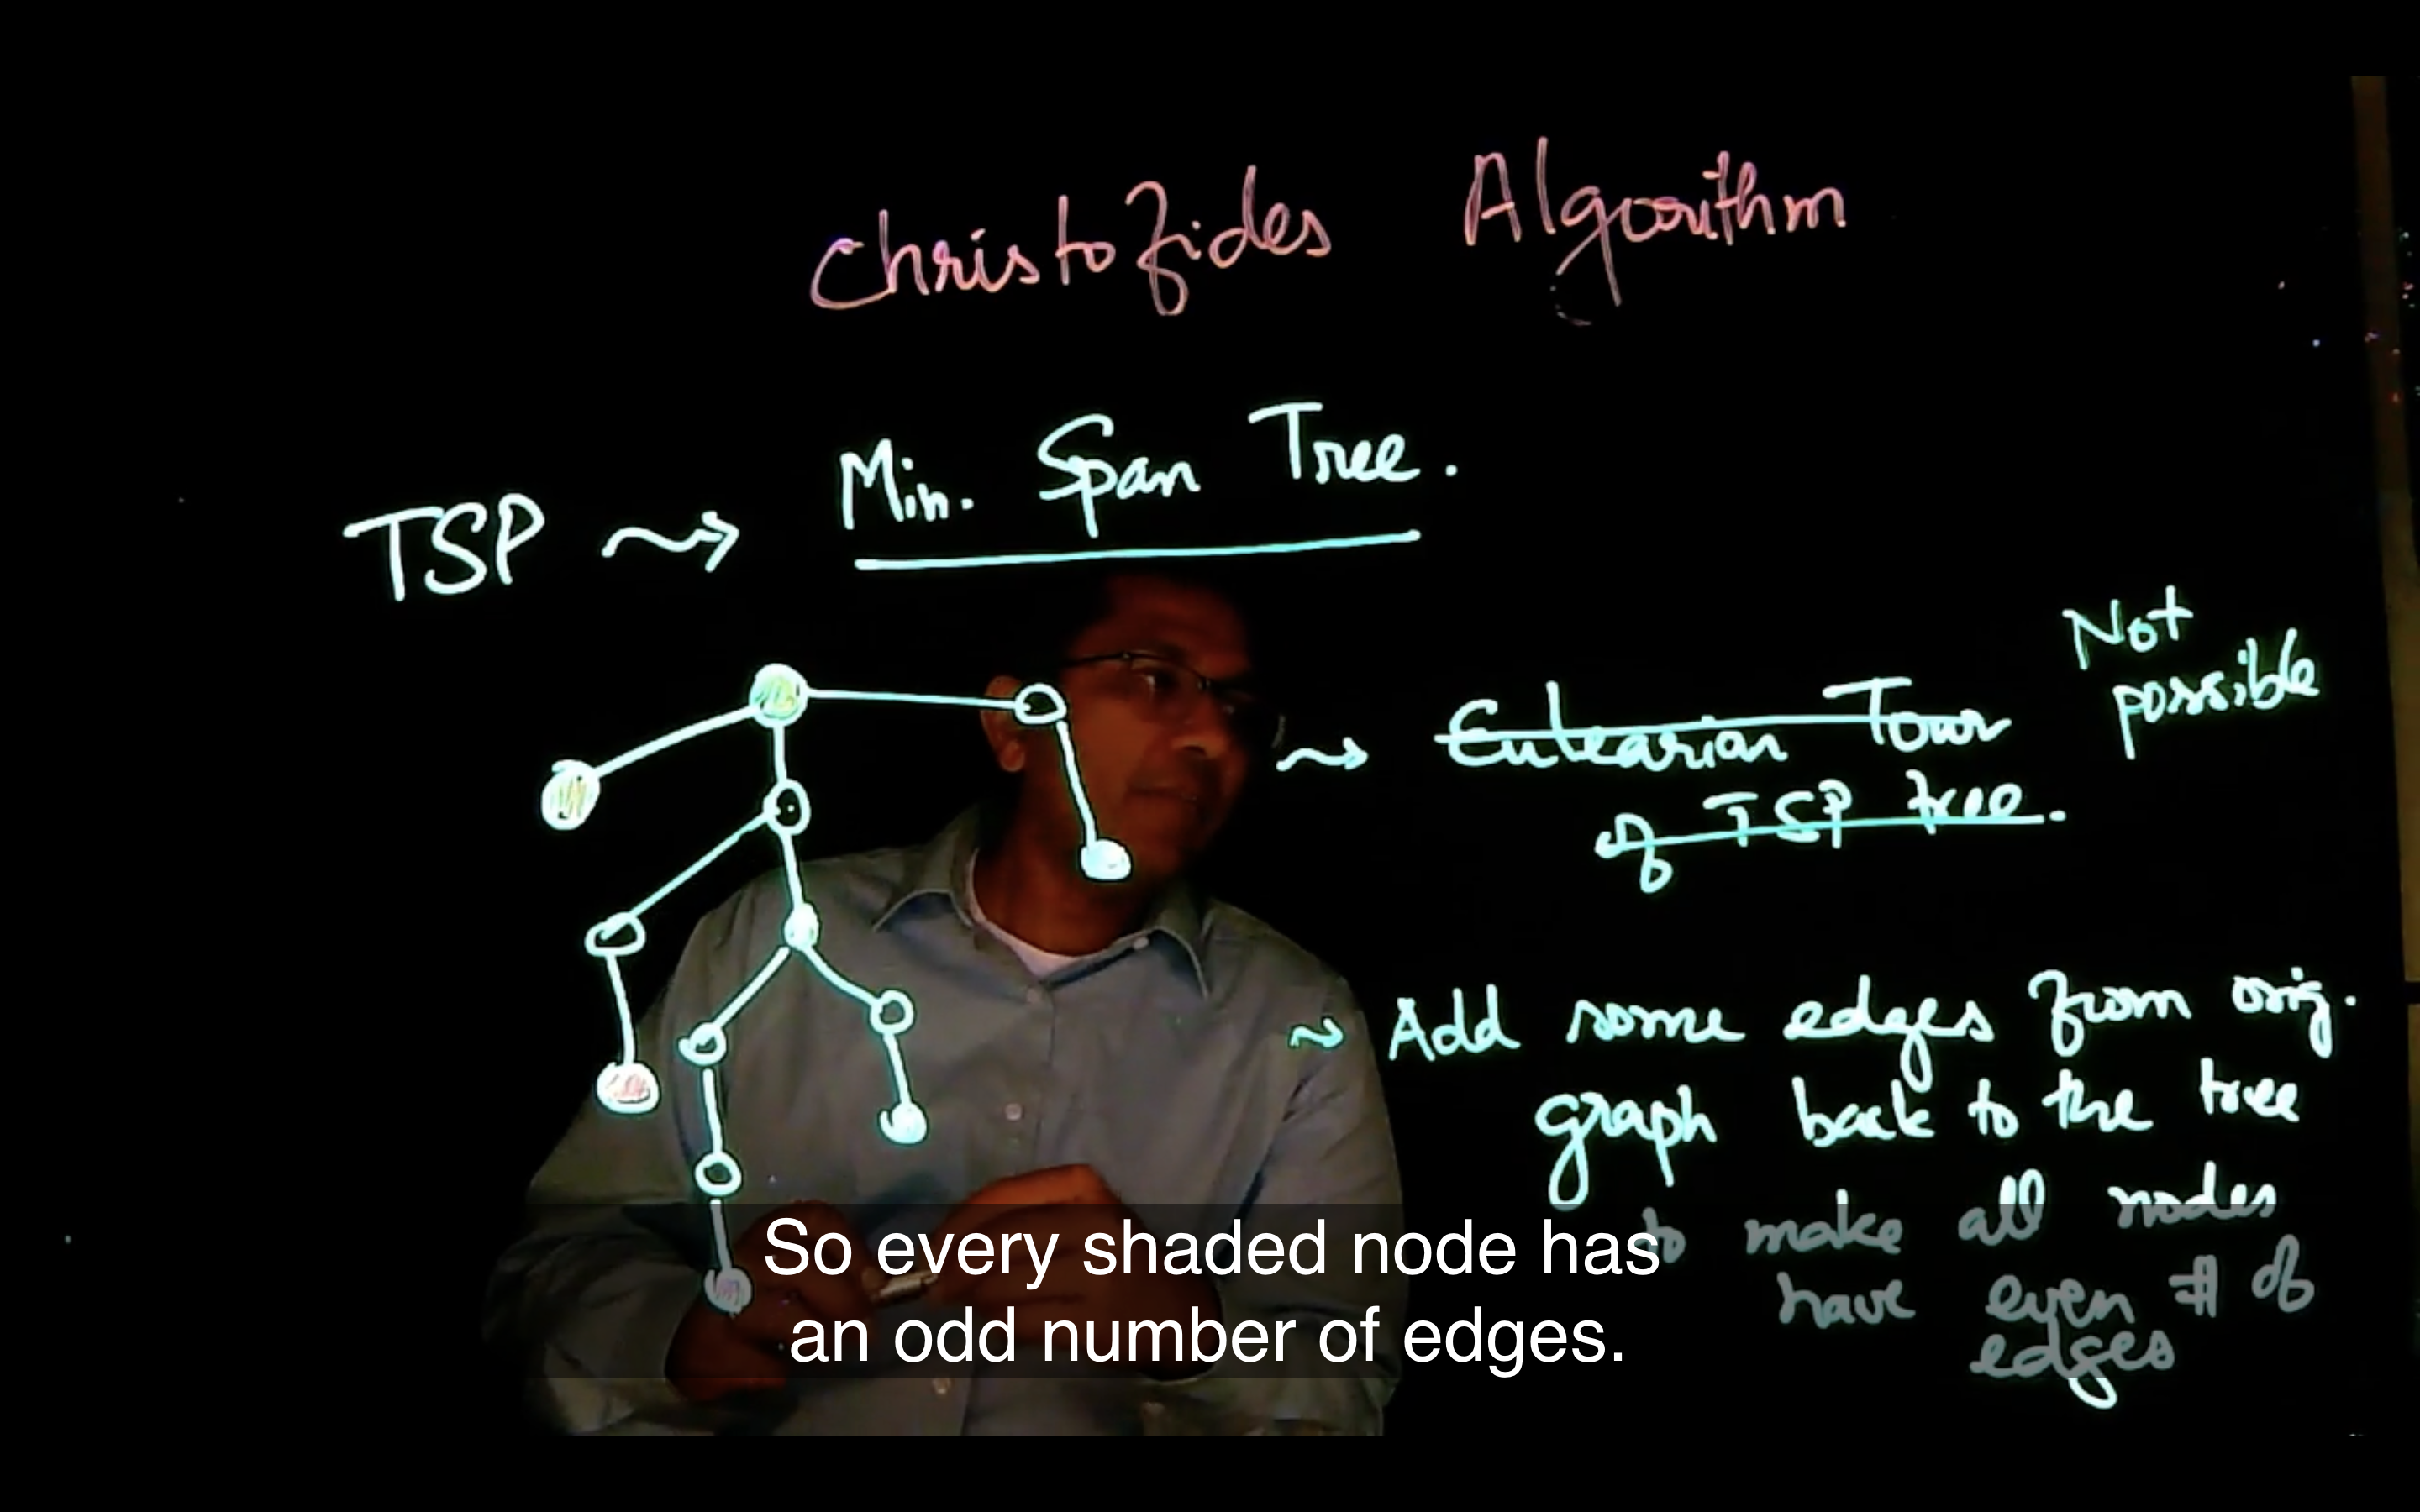 Christofides Algorithm
TSP ⇝ Min. Span Tree.
Not
possible
⇝ Eulearian Tour
of TSP tree.
⇝ Add some edges from orig.
graph back to the tree
to make all nodes
have even # of
edges
So every shaded node has
an odd number of edges.